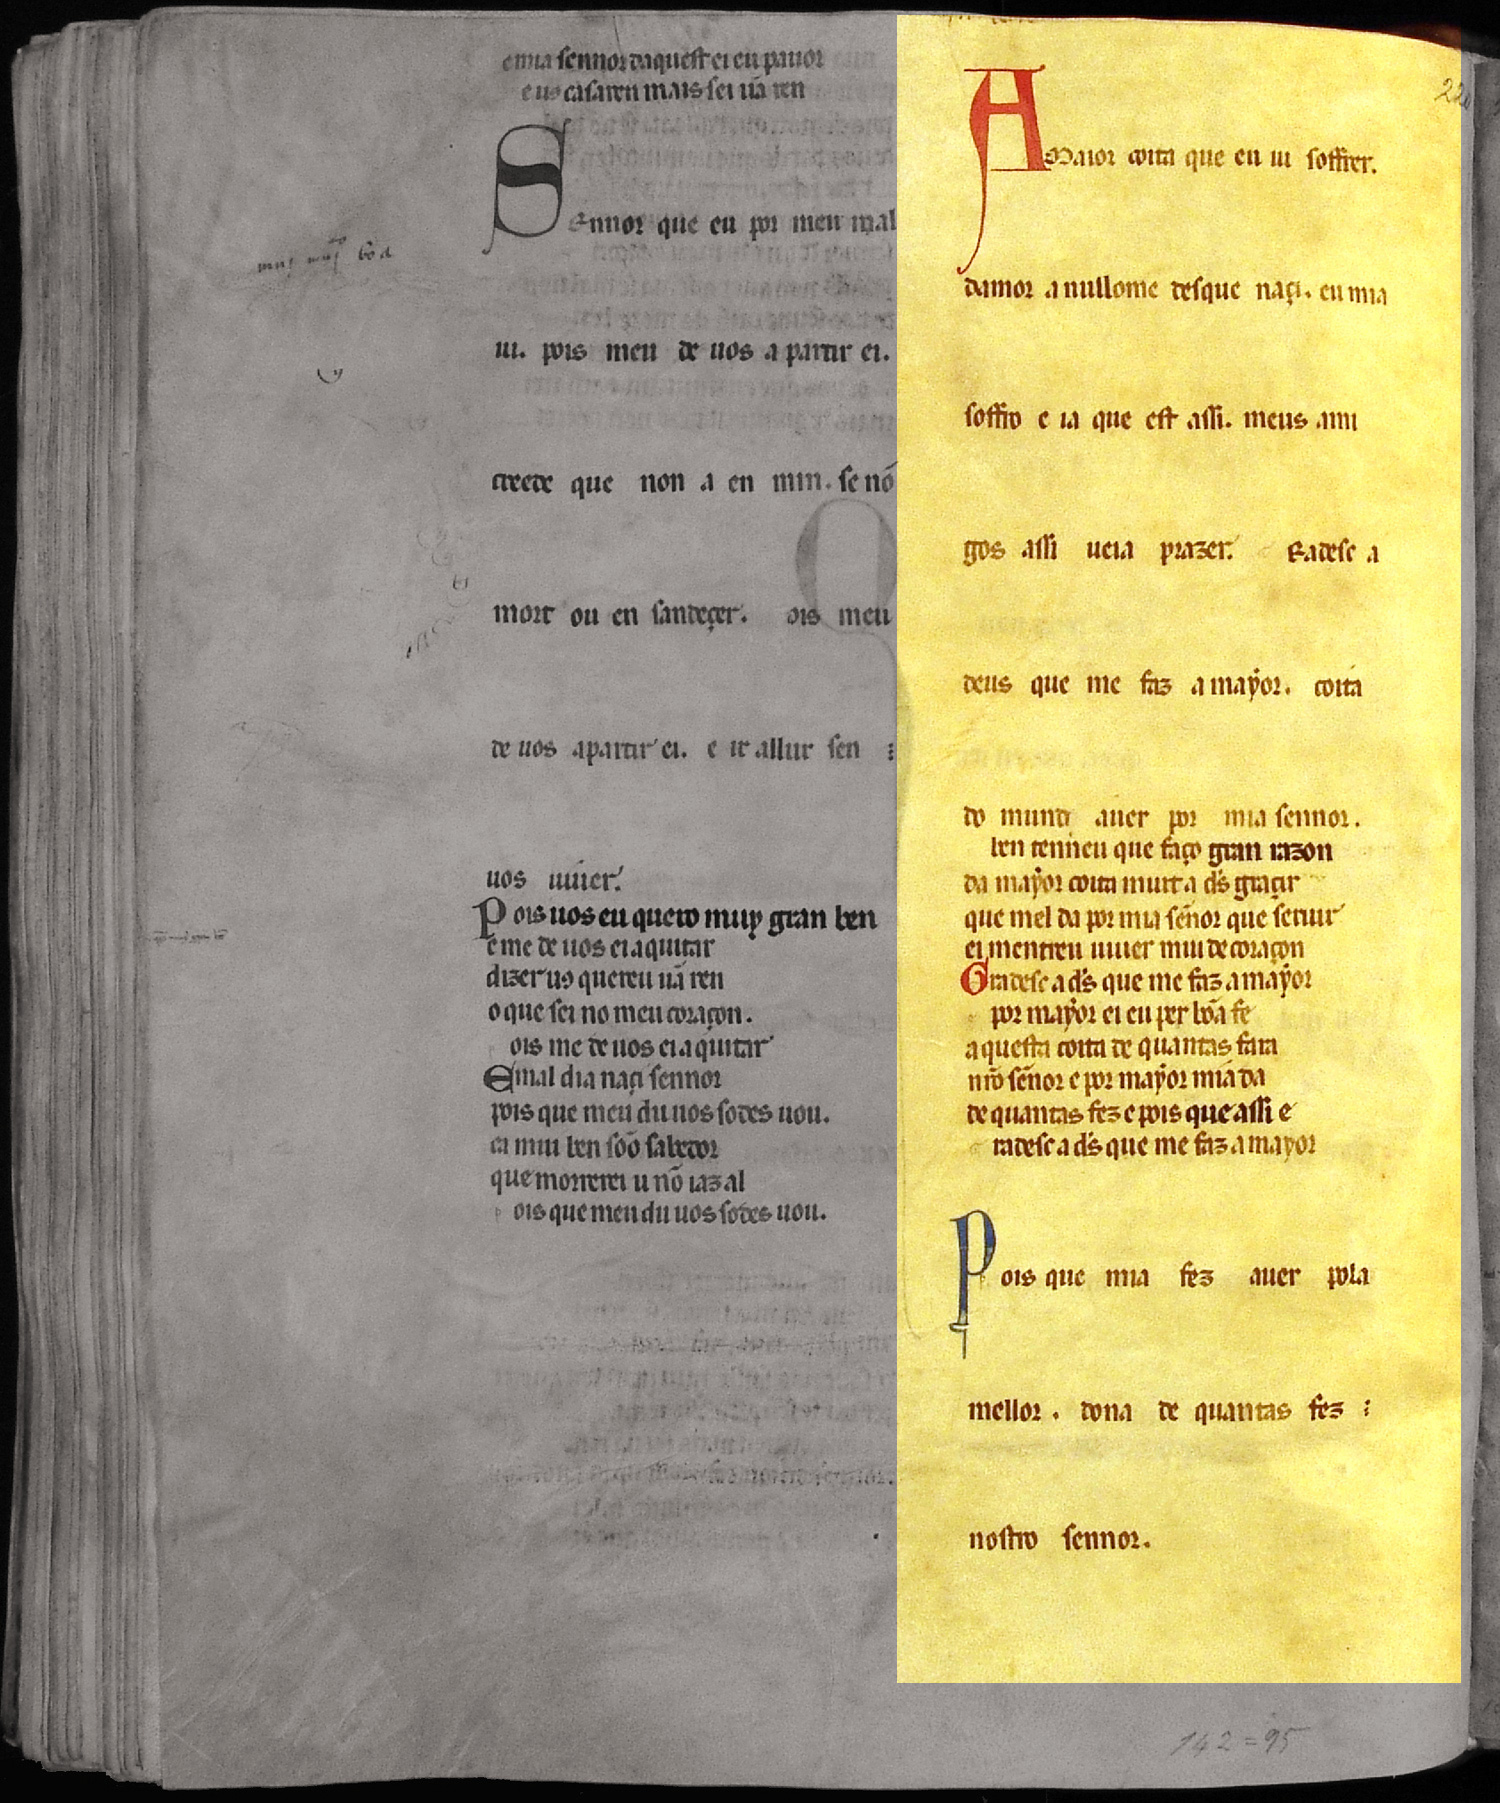 emia sennor daquest ei eu pauor
e us casaren mais sei ũa ren
Sennor que eu por meu mal
ui. pois meu de uos a partir ei.
creede que non a en min. se nō
mort ou en sandeçer. ois meu
de uos apartir ei. e ir allur sen
uos uiuer.
Pois uos eu quero muy gran ben
e me de uos ei a quitar
dizer uꝯ quereu ũa ren
o que sei no meu coraçon.
ois me de uos ei a quitar
E mal dia naçi sennor
pois que meu du uos sodes uou.
ca miu ben sōo sabedor
que morrerei u nō iaz al
ois que meu du uos sodes uou.
A Maior coita que eu ui soffrer.
damor a nullome desque naçi. eu mia
soffro e ia que est assi. meus ami
gos assi ueia prazer. Gradesc a
deus que me faz a mayor. coita
do mund auer por mia sennor.
ben tenneu que faço gran razon
da mayor coita muit a ds̄ graçir
que mel da por mia sen̄or que seruir
ei mentreu uiuer mui de coraçon
Gradesc a ds̄ que me faz a mayor
por mayor ei eu per bōa fe
aquesta coita de quantas fara
nr̄o sen̄or e por mayor mia da
de quantas fez e pois que assi e
radesc a ds̄ que me faz a mayor
Pois que mia fez auer pola
mellor. dona de quantas fez
nostro sennor.
142=95